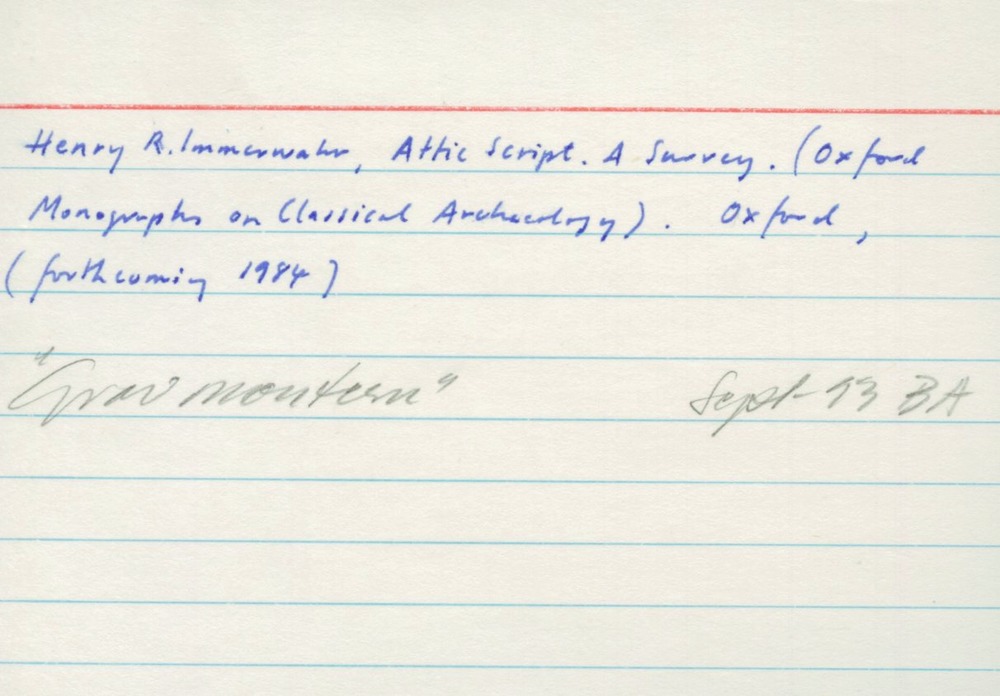 Henry R. Immerwahr, Attic Script. A Survey. (Oxford
Monographs on Classical Archaeology). Oxford,
(forthcoming 1984)
Sept-93 BA